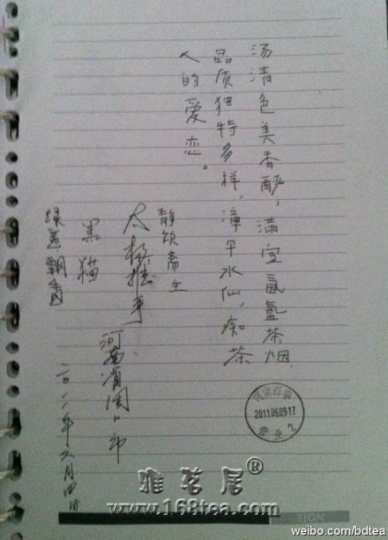 汤清色美香酽，满室氤氲茶烟
品质独特多样，漳平水仙，痴茶
人的爱恋。
静饮斋主
太极推手
河南省周口市
黑猫
飘香
二〇一一年六月四日
2011060917
雅茗居®
www.168tea.com
weibo.com/bdtea